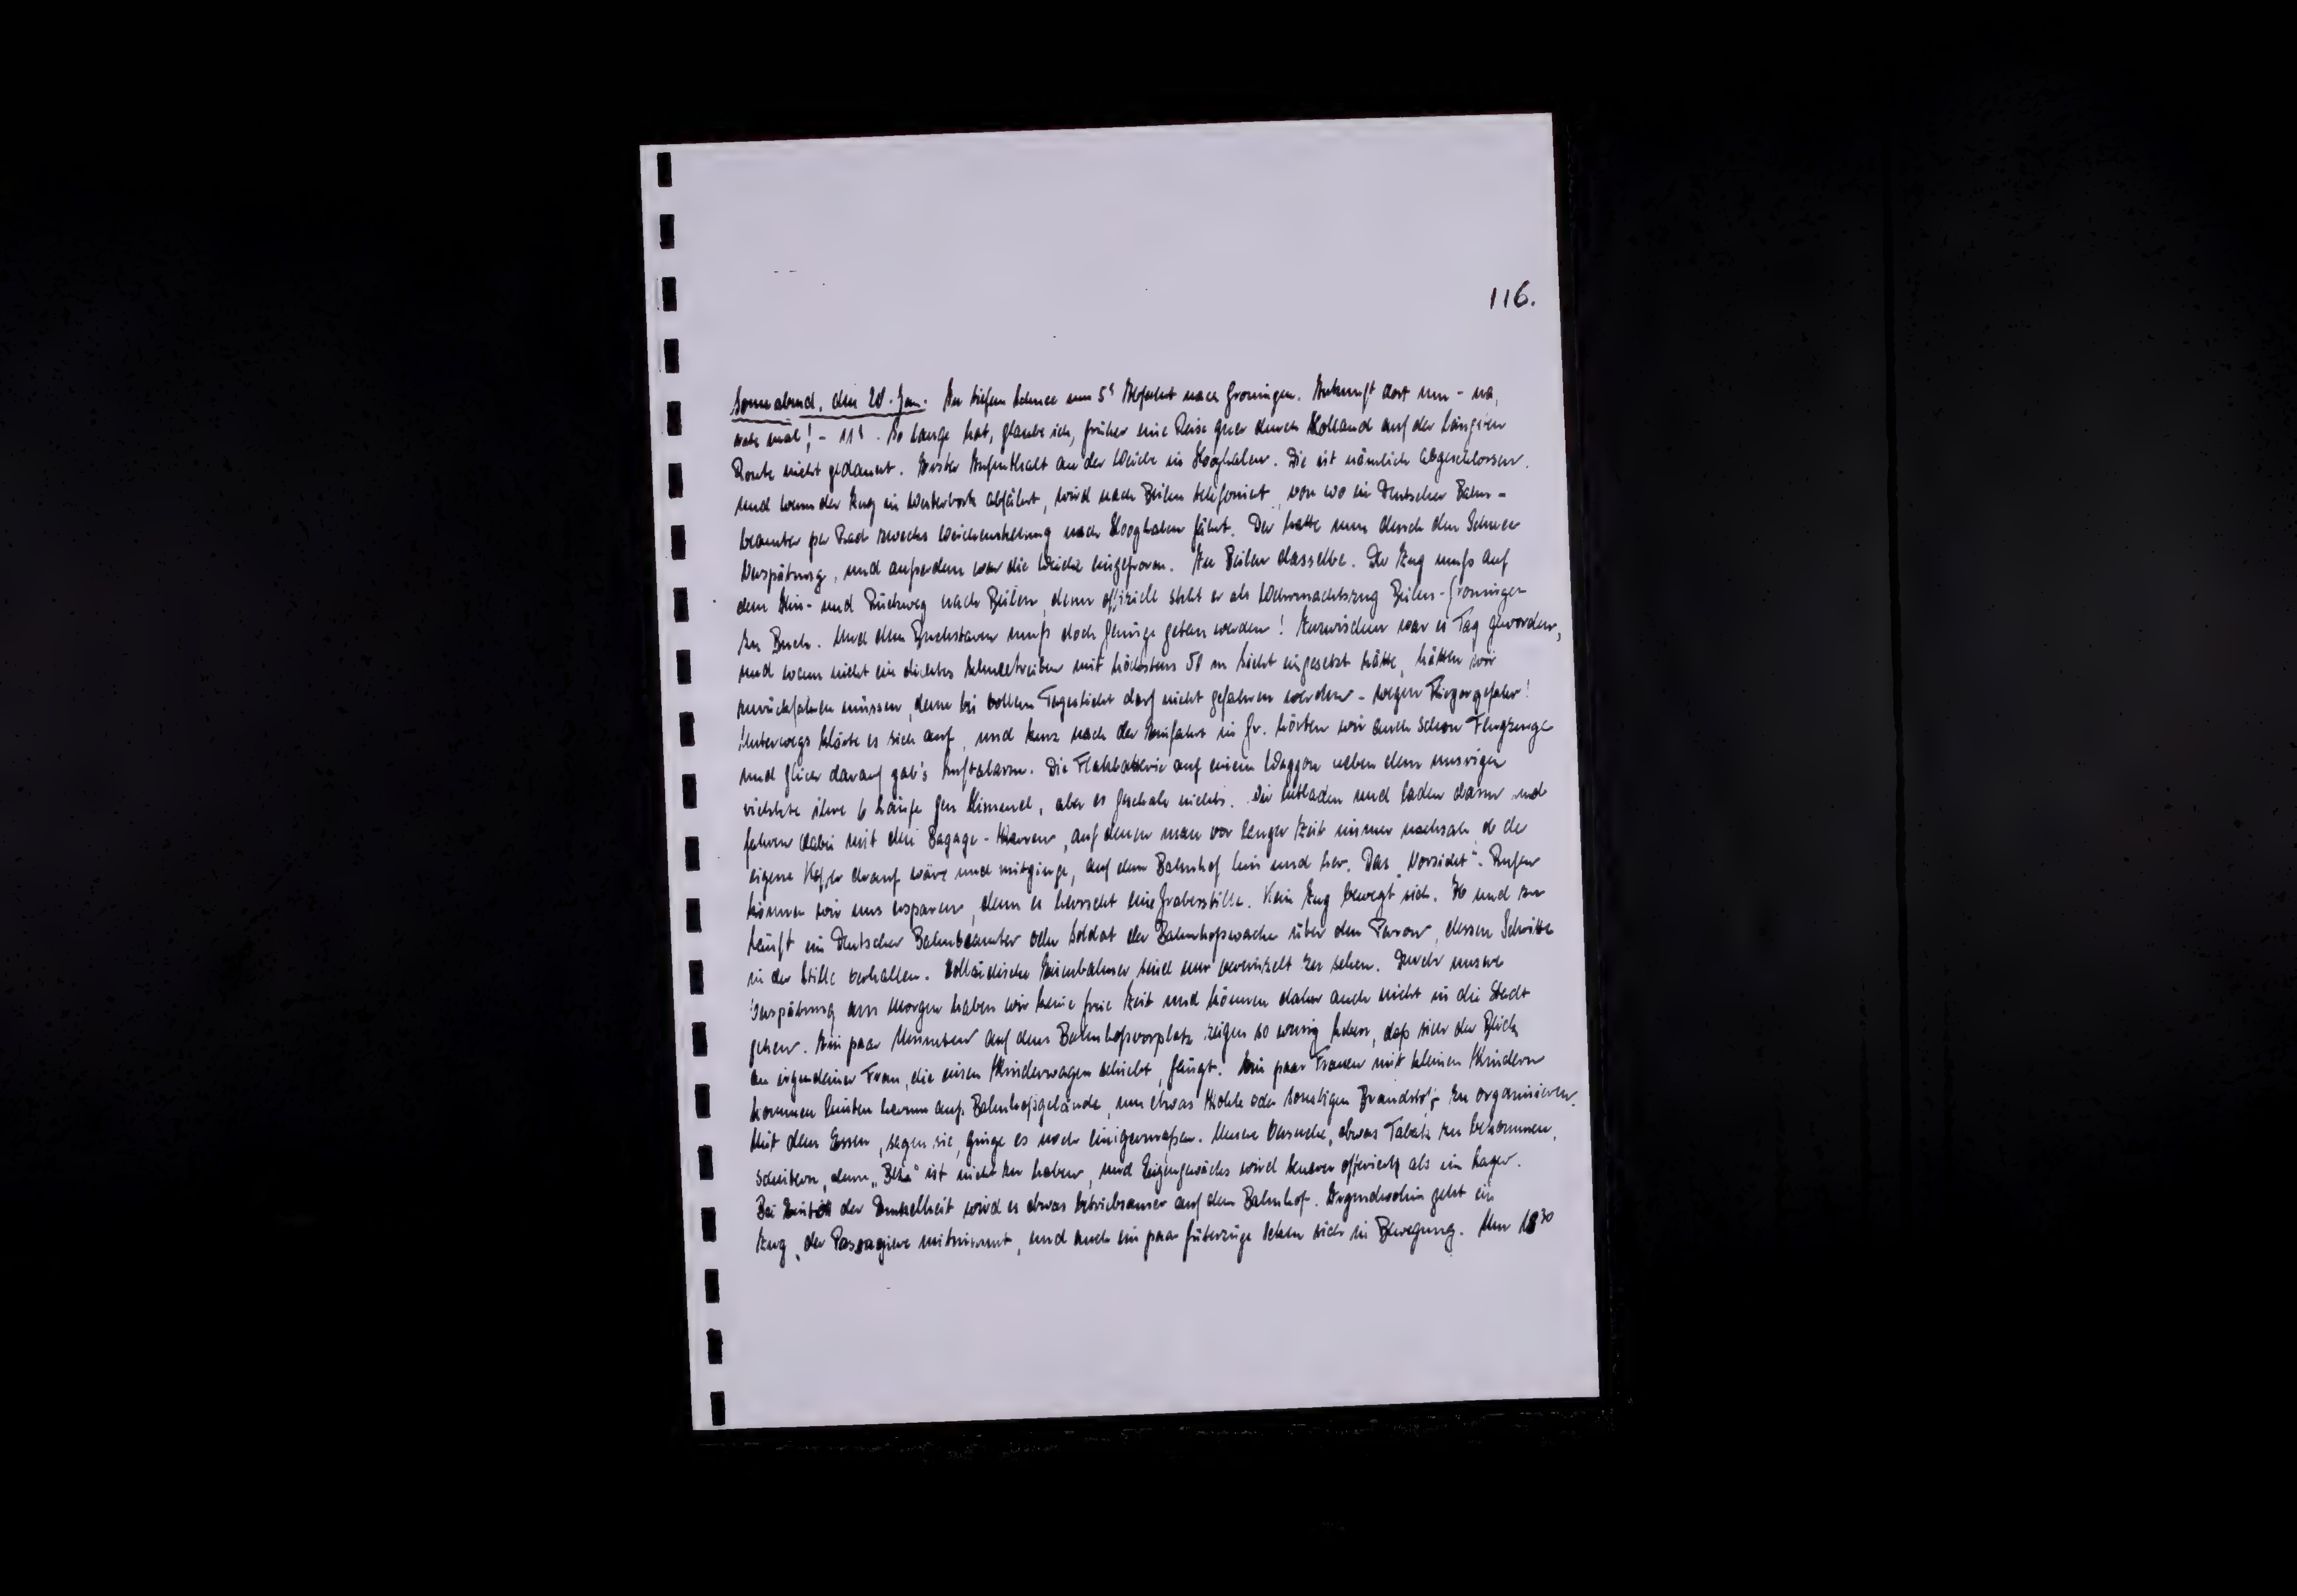 116.
Sonnabend, den 20. Jan. Im tiefen Schnee um 5ʰ Abfahrt nach Groningen. Ankunft dort um - na,
rate mal! - 11ʰ. So lange hat, glaube ich, früher eine Reise quer durch Holland auf der längsten
Route nicht gedauert. Erster Aufenthalt an der Weiche in Hooghalen. Die ist nämlich abgeschlossen.
Und wenn der Zug in Westerbork abfährt, wird nach Beilen telefoniert, von wo ein Deutscher Bahn-
beamter per Rad zwecks Weichenstellung nach Hooghalen fährt. Der hatte nun durch den Schnee
Verspätung, und außerdem war die Weiche eingefroren. In Beilen dasselbe. Der Zug muß auf
dem Hin- und Rückweg nach Beilen, denn offiziell steht er als Wehrmachtszug Beilen-Groningen
zu Buch. Und dem Buchstaben muß doch Genüge getan werden! Inzwischen war es Tag geworden,
und wenn nicht ein dichtes Schneetreiben mit höchstens 50 m Sicht eingesetzt hätte, hätten wir
zurückfahren müssen, denn bei vollem Tageslicht darf nicht gefahren werden - wegen Fliegergefahr!
Unterwegs klärte es sich auf, und kurz nach der Einfahrt in Gr. hörten wir auch schon Flugzeuge
und gleich darauf gab's Luftalarm. Die Flakbatterie auf einem Waggon neben dem unsrigen
richtete ihre 6 Läufe gen Himmel, aber es geschah nichts. Wir entladen und laden dann und
fahren dabei mit den Bagage-Karren, auf denen man vor langer Zeit immer nachsah, ob der
eigene Koffer drauf wäre und mitginge, auf dem Bahnhof hin und her. Das „Vorsicht"-Rufen
können wir uns ersparen, denn es herrscht eine Grabesstille. Kein Zug bewegt sich. Ab und zu
läuft ein Deutscher Bahnbeamter oder Soldat der Bahnhofswache über den Perron, dessen Schritte
in der Stille verhallen. Holländische Eisenbahner sind nur vereinzelt zu sehen. Durch unsere
Verspätung am Morgen haben wir keine freie Zeit und können daher auch nicht in die Stadt
gehen. Ein paar Minuten auf dem Bahnhofsvorplatz zeigen so wenig Leben, daß sich der Blick
an irgendeiner Frau, die einen Kinderwagen schiebt, fängt. Ein paar Frauen mit kleinen Kindern
kommen hinten herum aufs Bahnhofsgelände, um etwas Kohle oder sonstigen Brandstoff zu organisieren.
Mit dem Essen, sagen sie, ginge es noch einigermaßen. Unsere Versuche, etwas Tabak zu bekommen,
scheitern, denn „Beka" ist nicht zu haben, und Eigengewächs wird teurer offeriert als im Lager.
Bei Eintritt der Dunkelheit wird es etwas betriebsamer auf dem Bahnhof. Irgendwohin geht ein
Zug, der Passagiere mitnimmt, und auch ein paar Güterzüge setzen sich in Bewegung. Um 18³⁰